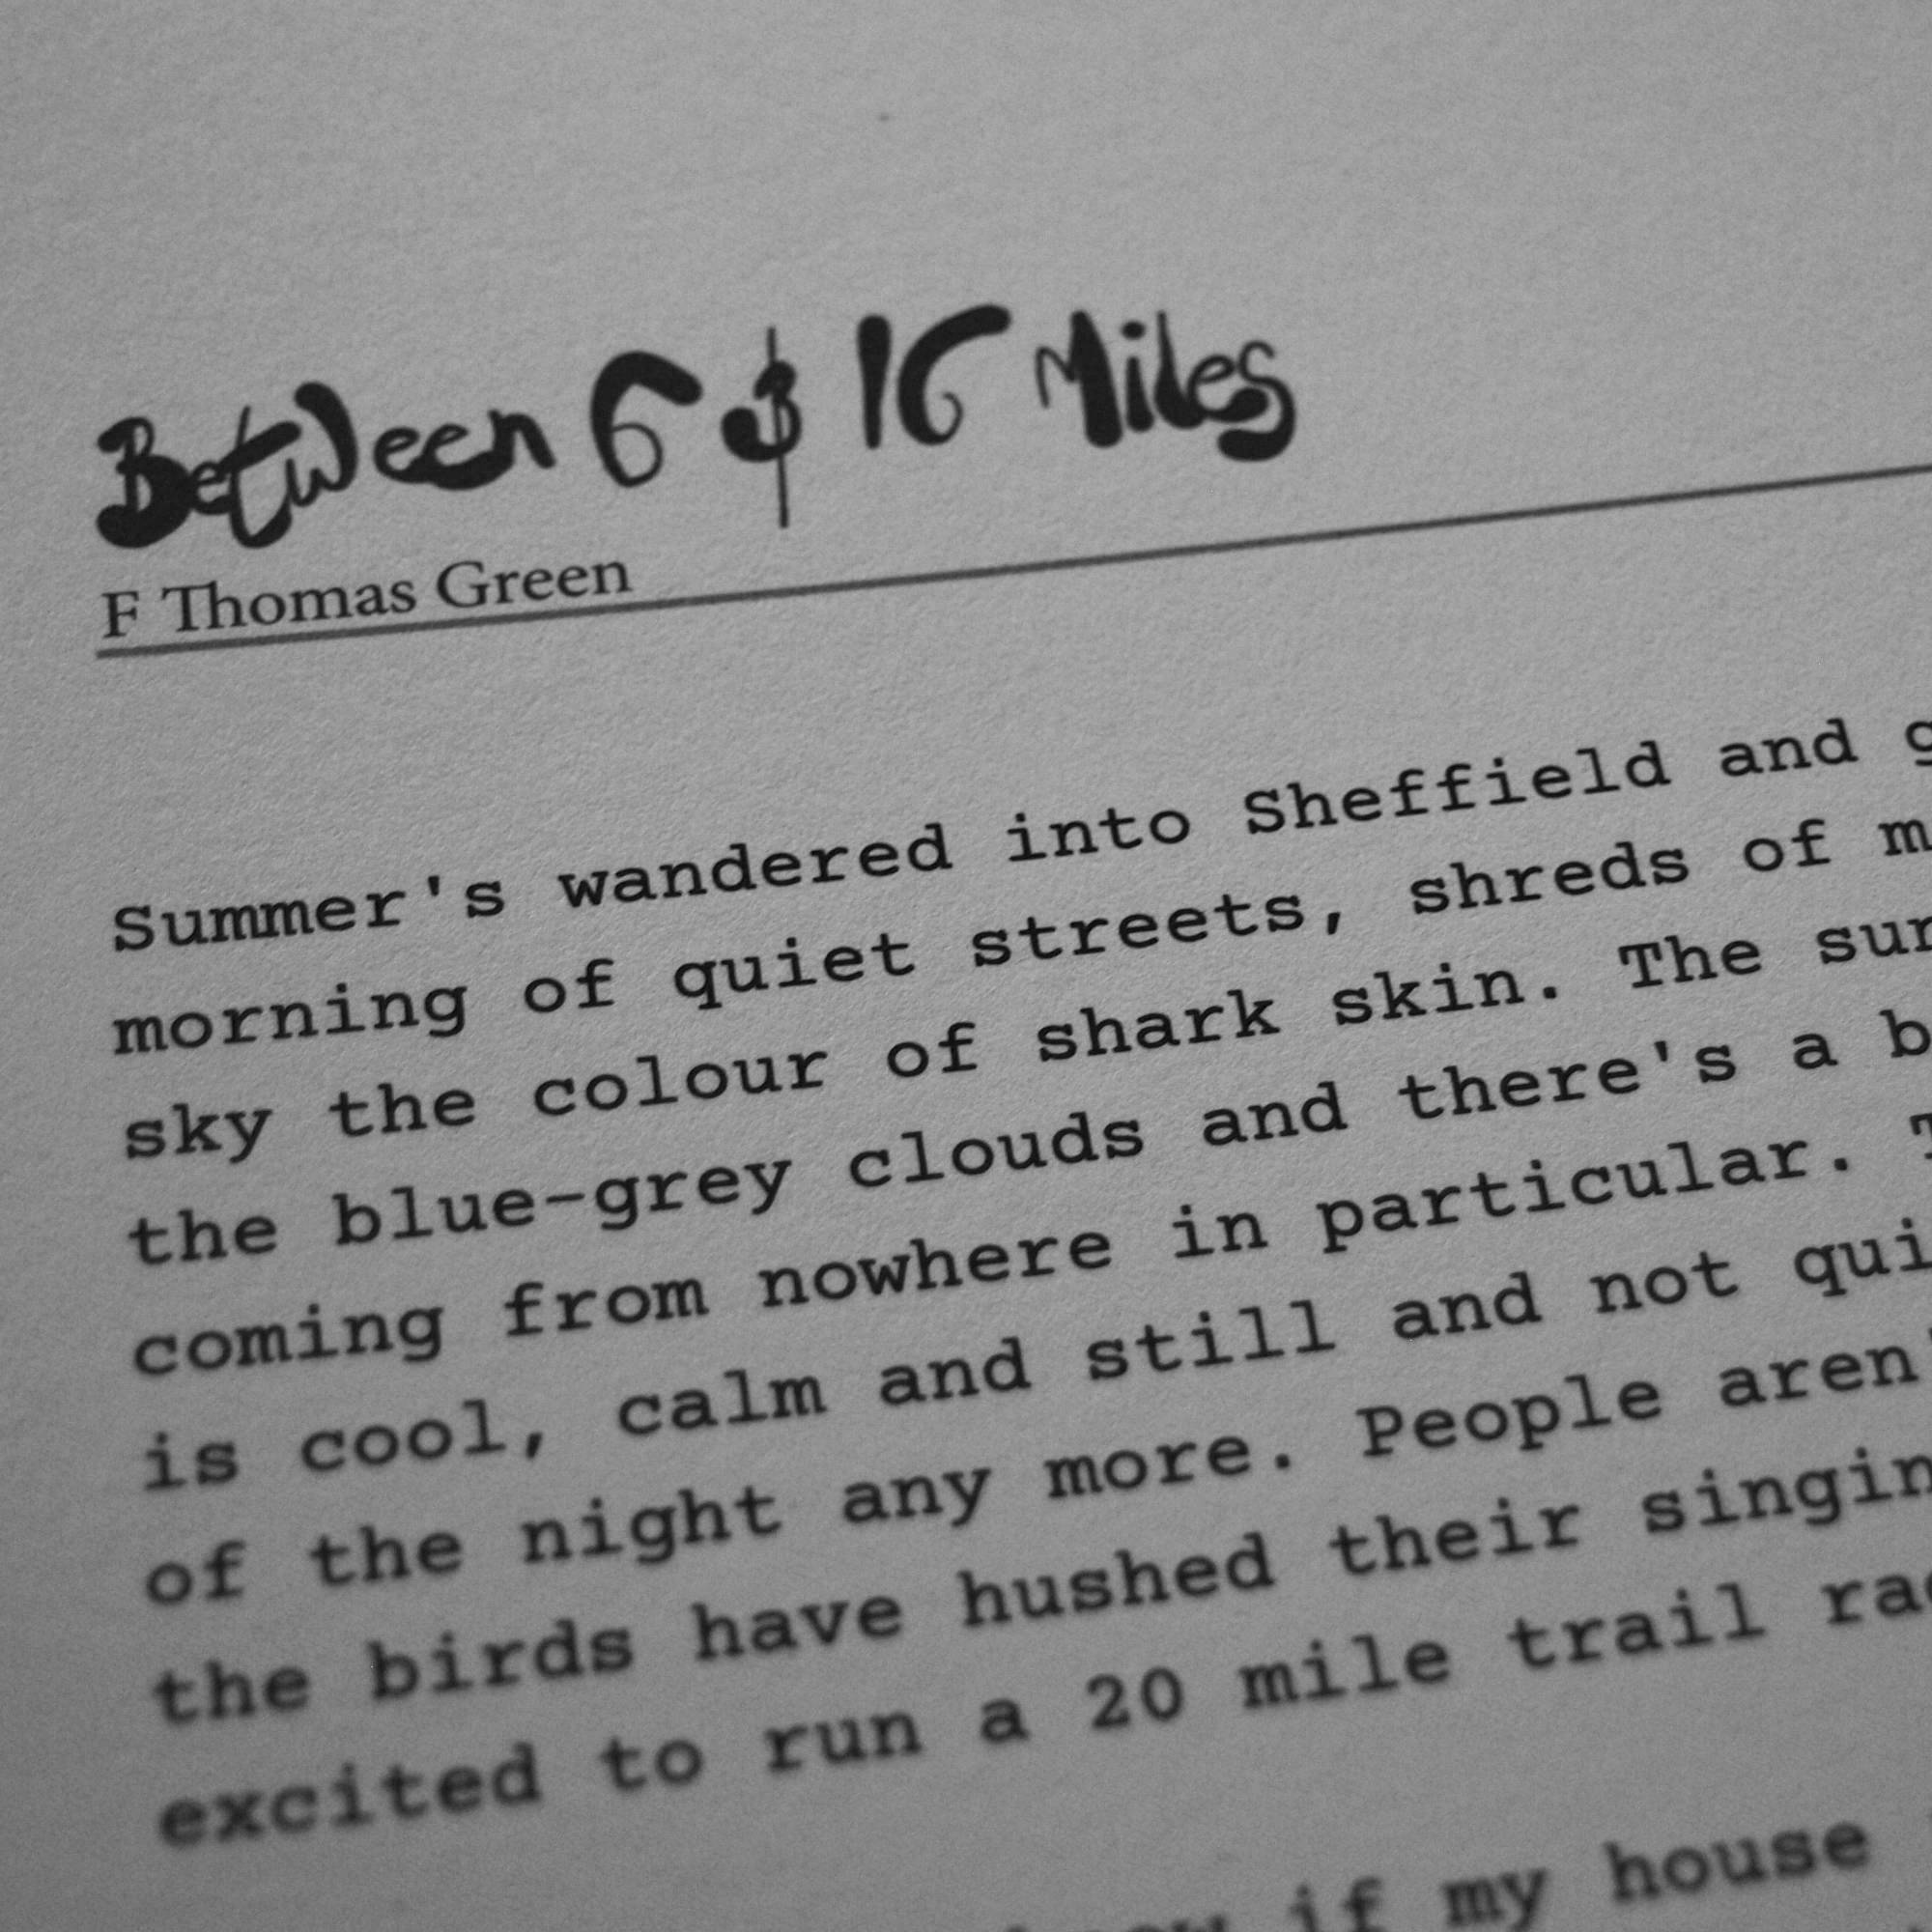 Between 6 & 16 Miles
F Thomas Green
Summer's wandered into Sheffield and
morning of quiet streets, shreds of
sky the colour of shark skin. The
the blue-grey clouds and there's a
coming from nowhere in particular.
is cool, calm and still and not
of the night any more. People
the birds have hushed their
excited to run a 20 mile trail
if my house